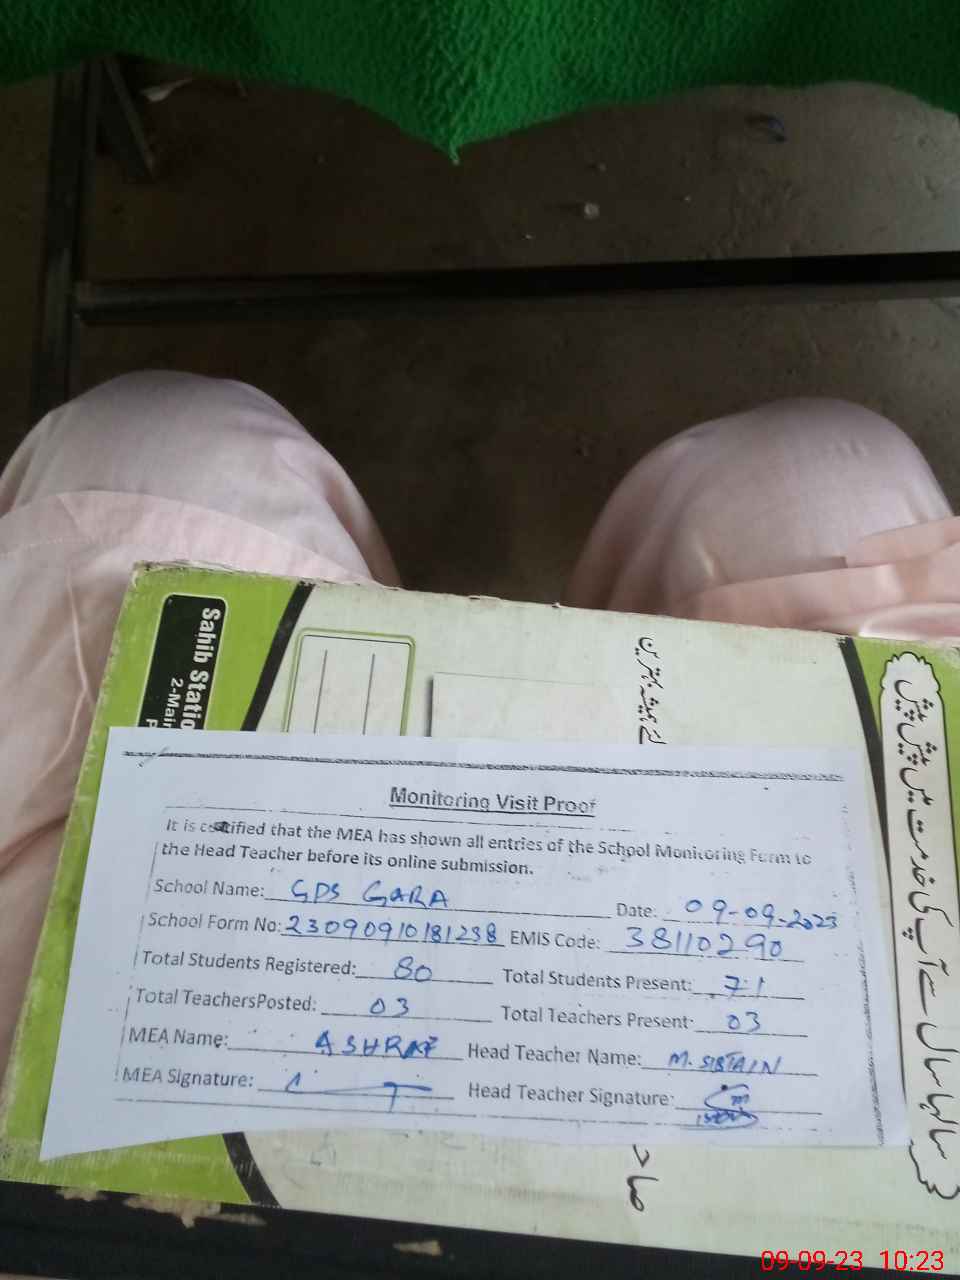 Sahib Statio
2-Main
P
Monitoring Visit Proof
It is certified that the MEA has shown all entries of the School Monitoring Form to
the Head Teacher before its online submission.
School Name: GPS GARA Date: 09-09-2023
School Form No: 23090910181238 EMIS Code: 38110290
Total Students Registered: 80 Total Students Present: 71
Total TeachersPosted: 03 Total Teachers Present: 03
MEA Name: ASHRAF Head Teacher Name: M. SIBTAIN
MEA Signature: Head Teacher Signature:
سالہا سال سے آپ کی خدمت میں پیش پیش
09-09-23 10:23